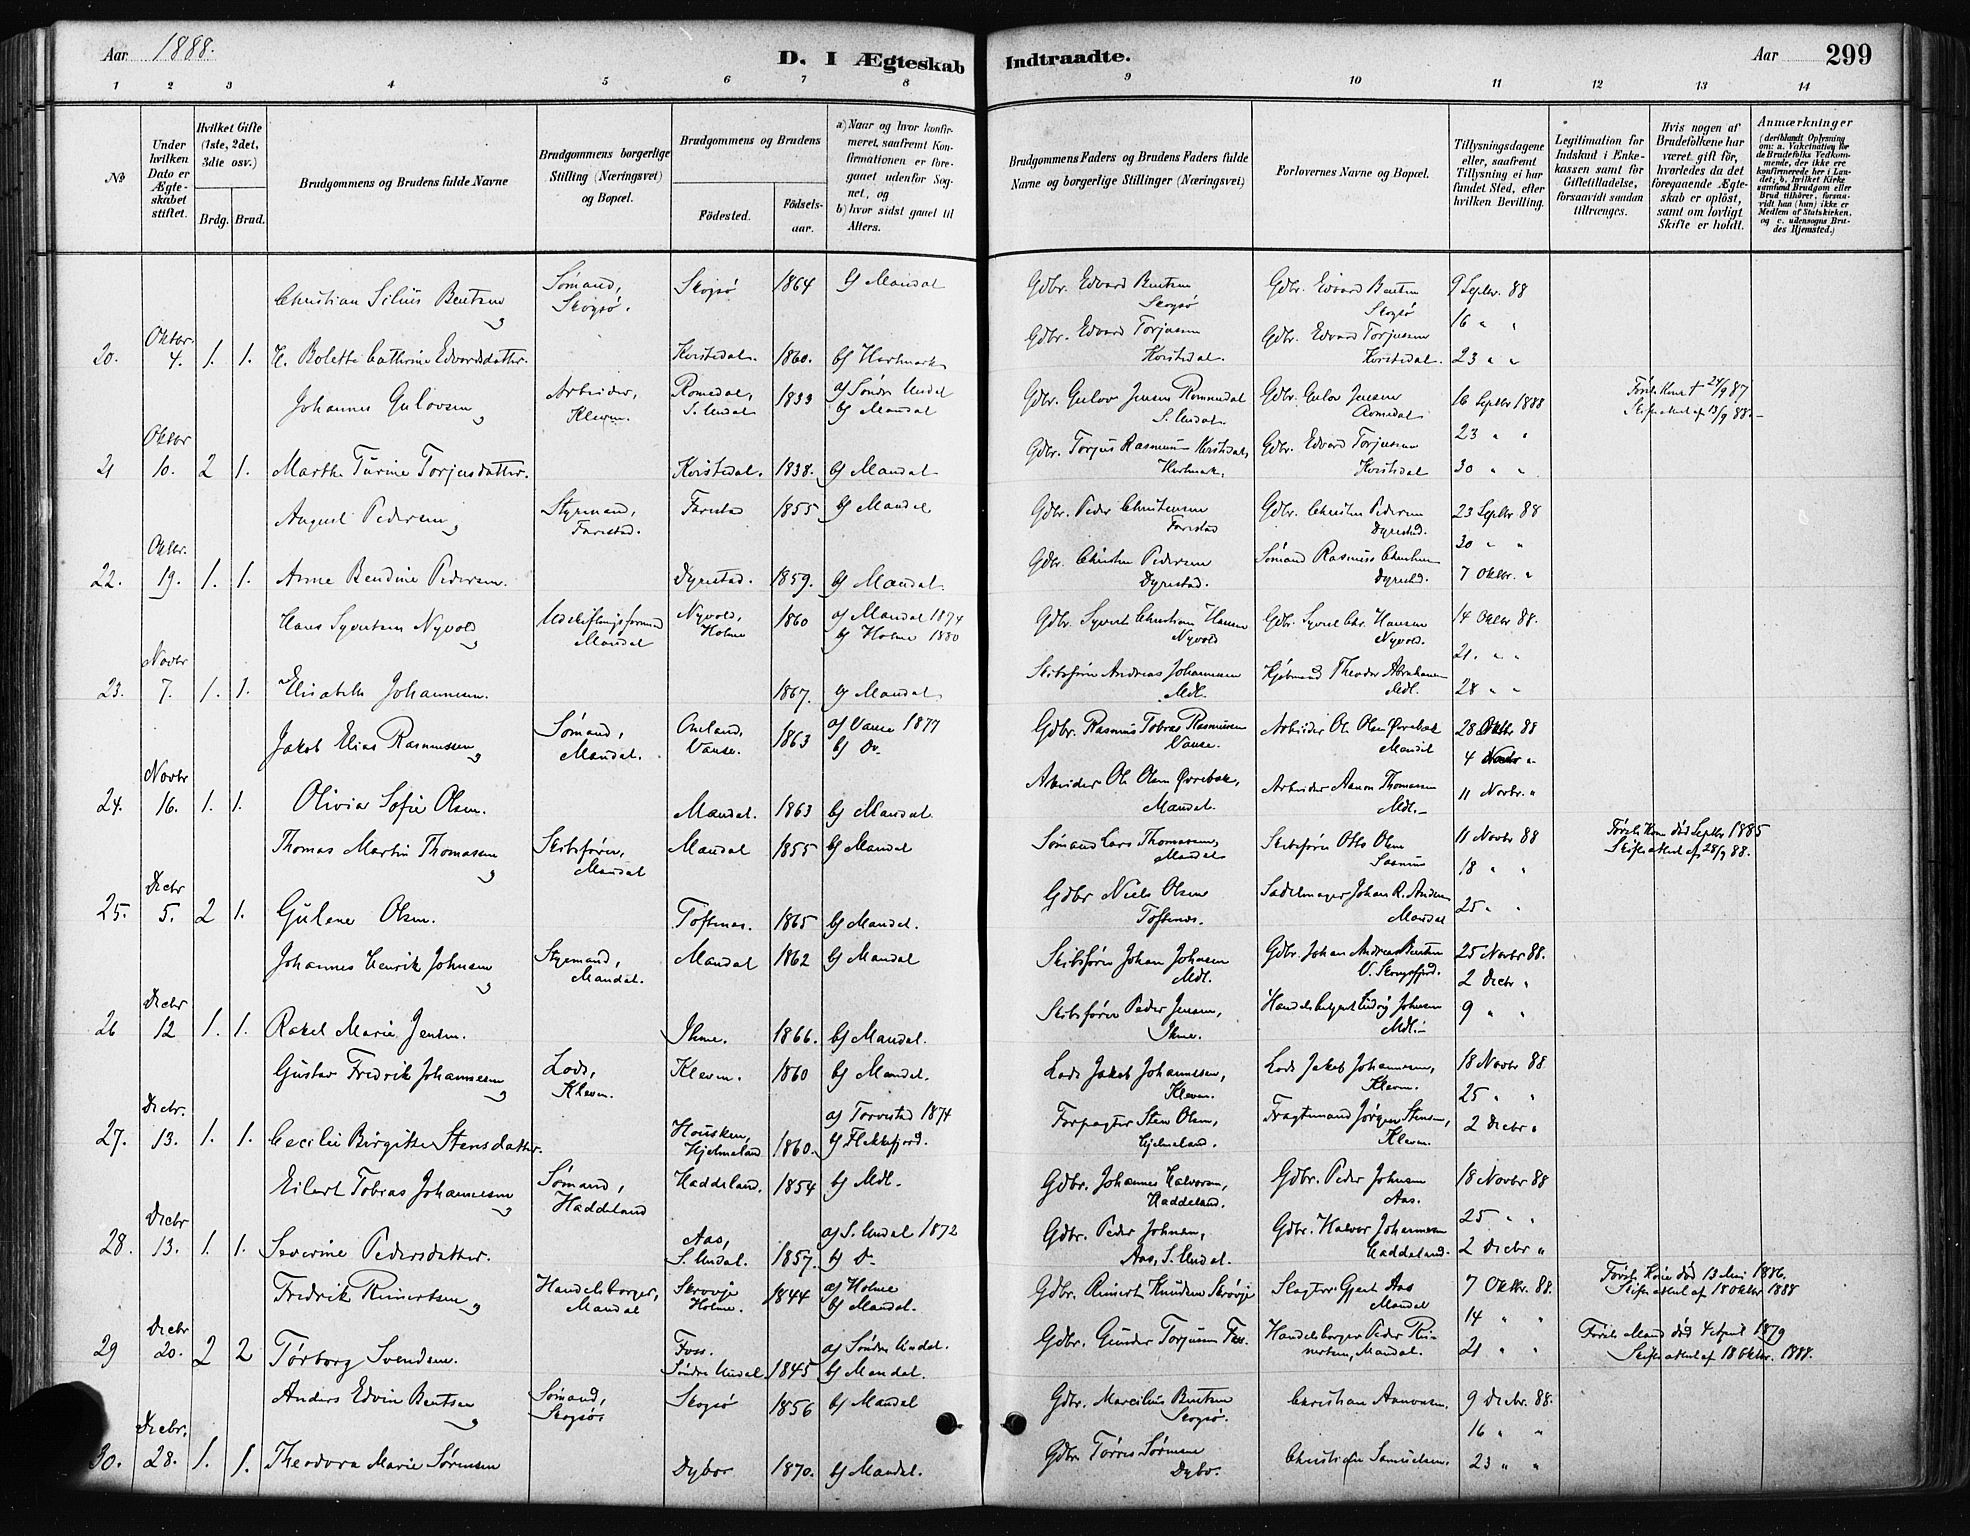 Aar 1888.
D. I Ægteskab Indtraadte.
Aar 299
1 2 3 4 5 6 7 8 9 10 11 12 13 14
No
Under hvilken Dato er Ægteskabet stiftet.
Hvilket Gifte (1ste, 2det, 3die osv.)
Brdg. Brud.
Brudgommens og Brudens fulde Navne
Brudgommens borgerlige Stilling (Næringsvei) og Bopæl.
Brudgommens og Brudens
Fødested. Fødselsaar.
a) Naar og hvor konfirmeret, saafremt Konfirmationen er foregaaet udenfor Sognet, og b) hvor sidst gaaet til Alters.
Brudgommens Faders og Brudens Faders fulde Navne og borgerlige Stillinger (Næringsvei)
Forlovernes Navne og Bopæl.
Tillysningsdagene eller, saafremt Tillysning ei har fundet Sted, efter hvilken Bevilling.
Legitimation for Indskud i Enkekassen samt for Giftetilladelse, forsaavidt saadan tiltrænges.
Hvis nogen af Brudefolkene har været gift før, hvorledes da det foregaaende Ægteskab er opløst, samt om lovligt Skifte er holdt.
Anmærkninger (deriblandt Oplysning om: a. Vakcination for de Brudefolks Vedkommende, der ikke ere konfirmerede her i Landet; b. hvilket Kirkesamfund Brudgom eller Brud tilhører, forsaavidt han (hun) ikke er Medlem af Statskirken, og c. udensogns Brudes Hjemsted.)
Christian Silius Bentsen Sømand, Skogsø. Skogsø 1864 b) Mandal Gdbr. Edvard Bentsen Skogsø Gdbr. Edvard Bentsen Skogsø 9 Septbr. 88
16 " "
20. Oktbr. 4. 1. 1. Bolette Cathrine Edvardsdatter. Kvistedal. 1860. b) Hartmark Gdbr. Edvard Torjusen Kvistedal. Gdbr. Edvard Torjusen Kvistedal. 23 " "
Johannes Gulovsen Arbeider, Kleven. Romedal, S. Undal 1833 a) Søndre Undal b) Mandal Gdbr. Gulov Jensen Romedal S. Undal. Gdbr. Gulov Jensen Romedal 16 Septbr 1888 Første Kone † 24/9 87 Skifteattest af 13/9 88.
23 " "
21 Oktbr 10. 2 1. Marthe Turine Torjusdatter. Kvistedal. 1838. b) Mandal Gdbr. Torjus Rasmusen Kvistedal, Hartmark. Gdbr. Edvard Torjusen Kvistedal 30 " "
August Pedersen Styrmand, Farestad. Farestad 1855 b) Mandal Gdbr. Peder Christensen Farestad Gdbr. Christen Pedersen Dyrestad. 23 Septbr 88
30 " "
22. Oktbr. 19. 1. 1. Anne Bendine Pedersen. Dyrestad. 1859. b) Mandal. Gdbr. Christen Pedersen Dyrestad. Sømand Rasmus Christensen Dyrestad. 7 Oktbr. "
Hans Syvertsen Nyvold Udskiftningsformand Mandal Nyvold, Holme 1860 a) Mandal 1874 b) Holme 1880 Gdbr. Syvert Christian Hansen Nyvold Gdbr. Syvert Chr. Hansen Nyvold. 14 Oktbr 88.
21. " "
23. Novbr 7. 1. 1. Elisabeth Johannesen. 1867. b) Mandal Skibsfører Andreas Johannesen Mdl. Kjøbmand Theodor Abrahamsen Mdl. 28 " "
Jakob Elias Rasmussen Sømand, Mandal. Vanse. 1863 a) Vanse 1877 b) Do. Gdbr. Rasmus Tobias Rasmusen Vanse. Arbeider Ole Olsen Øvrebøk Mandal 28 Oktbr 88
4 Novbr "
24. Novbr 16. 1. 1. Olivia Sofie Olsen. Mandal. 1863 b) Mandal. Arbeider Ole Olsen Øvrebøk, Mandal. Arbeider Aanon Thomassen Mdl. 11 Novbr. "
Thomas Martin Thomassen Skibsfører, Mandal Mandal 1855 b) Mandal Sømand Lars Thomassen, Mandal Skibsfører Otto Olsen Saanum 11 Novbr 88 Første Kone død Septbr 1885 Skifteattest af 28/9 88.
18 " "
25. Decbr 5. 2 1. Gulene Olsen. Toftenes. 1865 b) Mandal. Gdbr Niels Olsen Toftenes. Sadelmager Johan R. Andersen Mandal 25 " "
Johannes Henrik Johnsen Styrmand, Mandal. Mandal 1862 b) Mandal Skibsfører Johan Johnsen Mdl. Gdbr. Johan Andreas Bentsen V. Skogsfjord. 25 Novbr 88.
2 Decbr "
26 Decbr 12 1. 1. Rakel Marie Jensen. Ihme. 1866. b) Mandal. Skibsfører Peder Jensen, Ihme. Handelsbetjent Ludvig Johnsen Mdl. 9 " "
Gustav Fredrik Johannesen Lods, Kleven. Kleven. 1860 b) Mandal. Lods Jakob Johannesen, Kleven. Lods Jakob Johannesen, Kleven. 18 Novbr 88
25 " "
27. Decbr. 13. 1. 1. Cecilie Birgitte Stensdatter. Housken, Hjelmeland 1860. a) Torvestad 1874 b) Flekkefjord. Forpagter Sten Olsen, Hjelmeland. Fragtemand Jørgen Stensen, Kleven. 2 Decbr "
Eilert Tobias Johannesen Sømand, Haddeland Haddeland. 1854 b) Mdl. Gdbr. Johannes Halvorsen, Haddeland. Gdbr. Peder Johnsen Aas. 18 Novbr 88
25 " "
28. Decbr 13. 1. 1. Severine Pedersdatter. Aas, S. Undal. 1857. a) S. Undal 1872 b) Do Gdbr. Peder Johnsen, Aas, S. Undal. Gdbr. Halvor Johannesen Haddeland. 2 Decbr "
Fredrik Reinertsen Handelsborger, Mandal Skrøvje Holme. 1844 a) Holme b) Mandal. Gdbr. Reinert Knudsen Skrøvje Slagter Gjert Aas Mandal 7 Oktbr. 88. Første Kone død 13 Mai 1886. Skifteattest af 18 Oktbr 1888
14 " "
29 Decbr 20. 2 2 Torborg Svendsen. Foss. Søndre Undal 1845 a) Søndre Undal. b) Mandal. Gdbr. Gunder Torjusen Foss. Handelsborger Peder Reinertsen, Mandal. 21 " " Første Mand død 4 April 1879 Skifteattest af 18 Oktbr. 1888.
Anders Edvin Bentsen Sømand, Skogsø Skogsø 1856 b) Mandal Gdbr. Marcilius Bentsen Skogsø. Christian Aanonsen. 9 Decbr. 88.
16 " "
30. Decbr. 28. 1. 1. Theodora Marie Sørensen Dybo 1870. b) Mandal. Gdbr. Tørres Sørensen Dybo. Christian Samuelsen. 23 " "